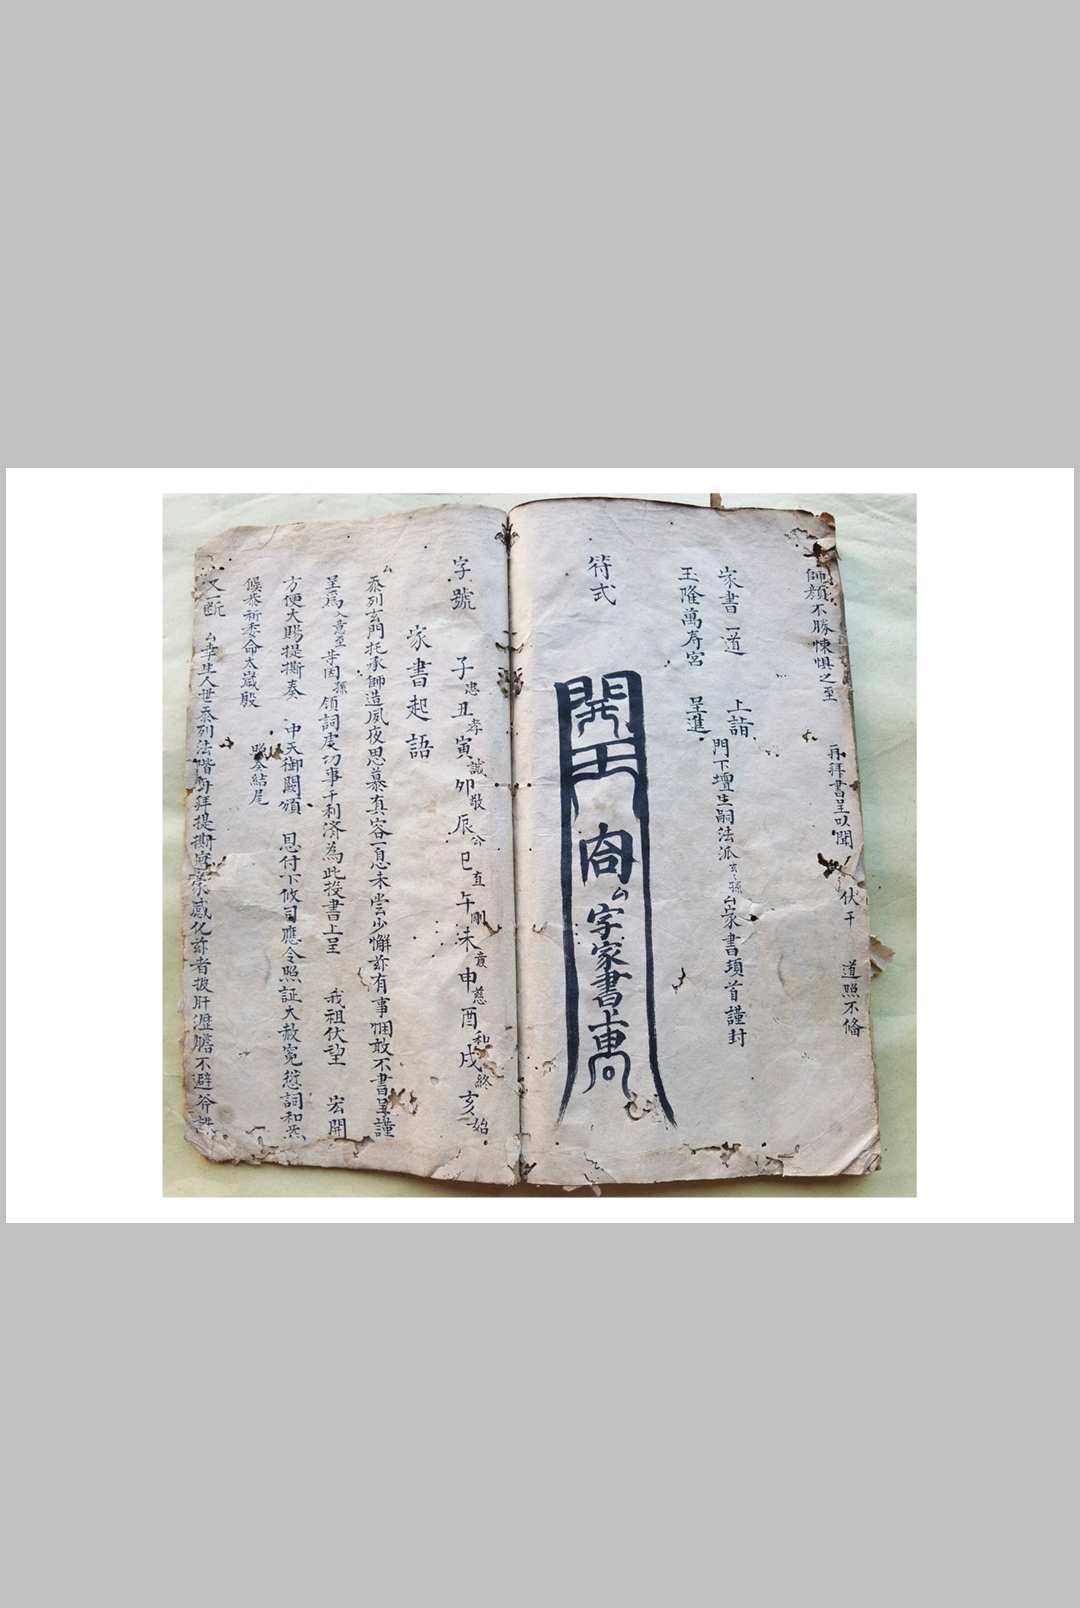 師顏不勝悚惧之至
再拜書呈以聞 伏干 道照不俻
家書一道 上詣
玉隆萬寿宮 呈進
門下壇生嗣法派玄孫厶家書頓首謹封
符式
厶字家書上
字號 子忠丑孝寅誠卯敬辰公巳直午剛未 申慈酉和戌終亥始
家書起語
厶忝列玄門托承師造夙夜思慕真容一息未嘗少懈茲有事 敢不書呈謹
呈爲入意至 孫領詞虔切事干利济為此投書上呈 我祖伏望 宏開
方便大賜提撕奏 中天御闕頒 恩付下攸司應令照証大赦冤愆詞和炁
候恭祈委命太歲殿 照奏結尾
又一断 厶幸生人世忝列法階 拜提撕 蒙感化茲者披肝瀝膽不避斧